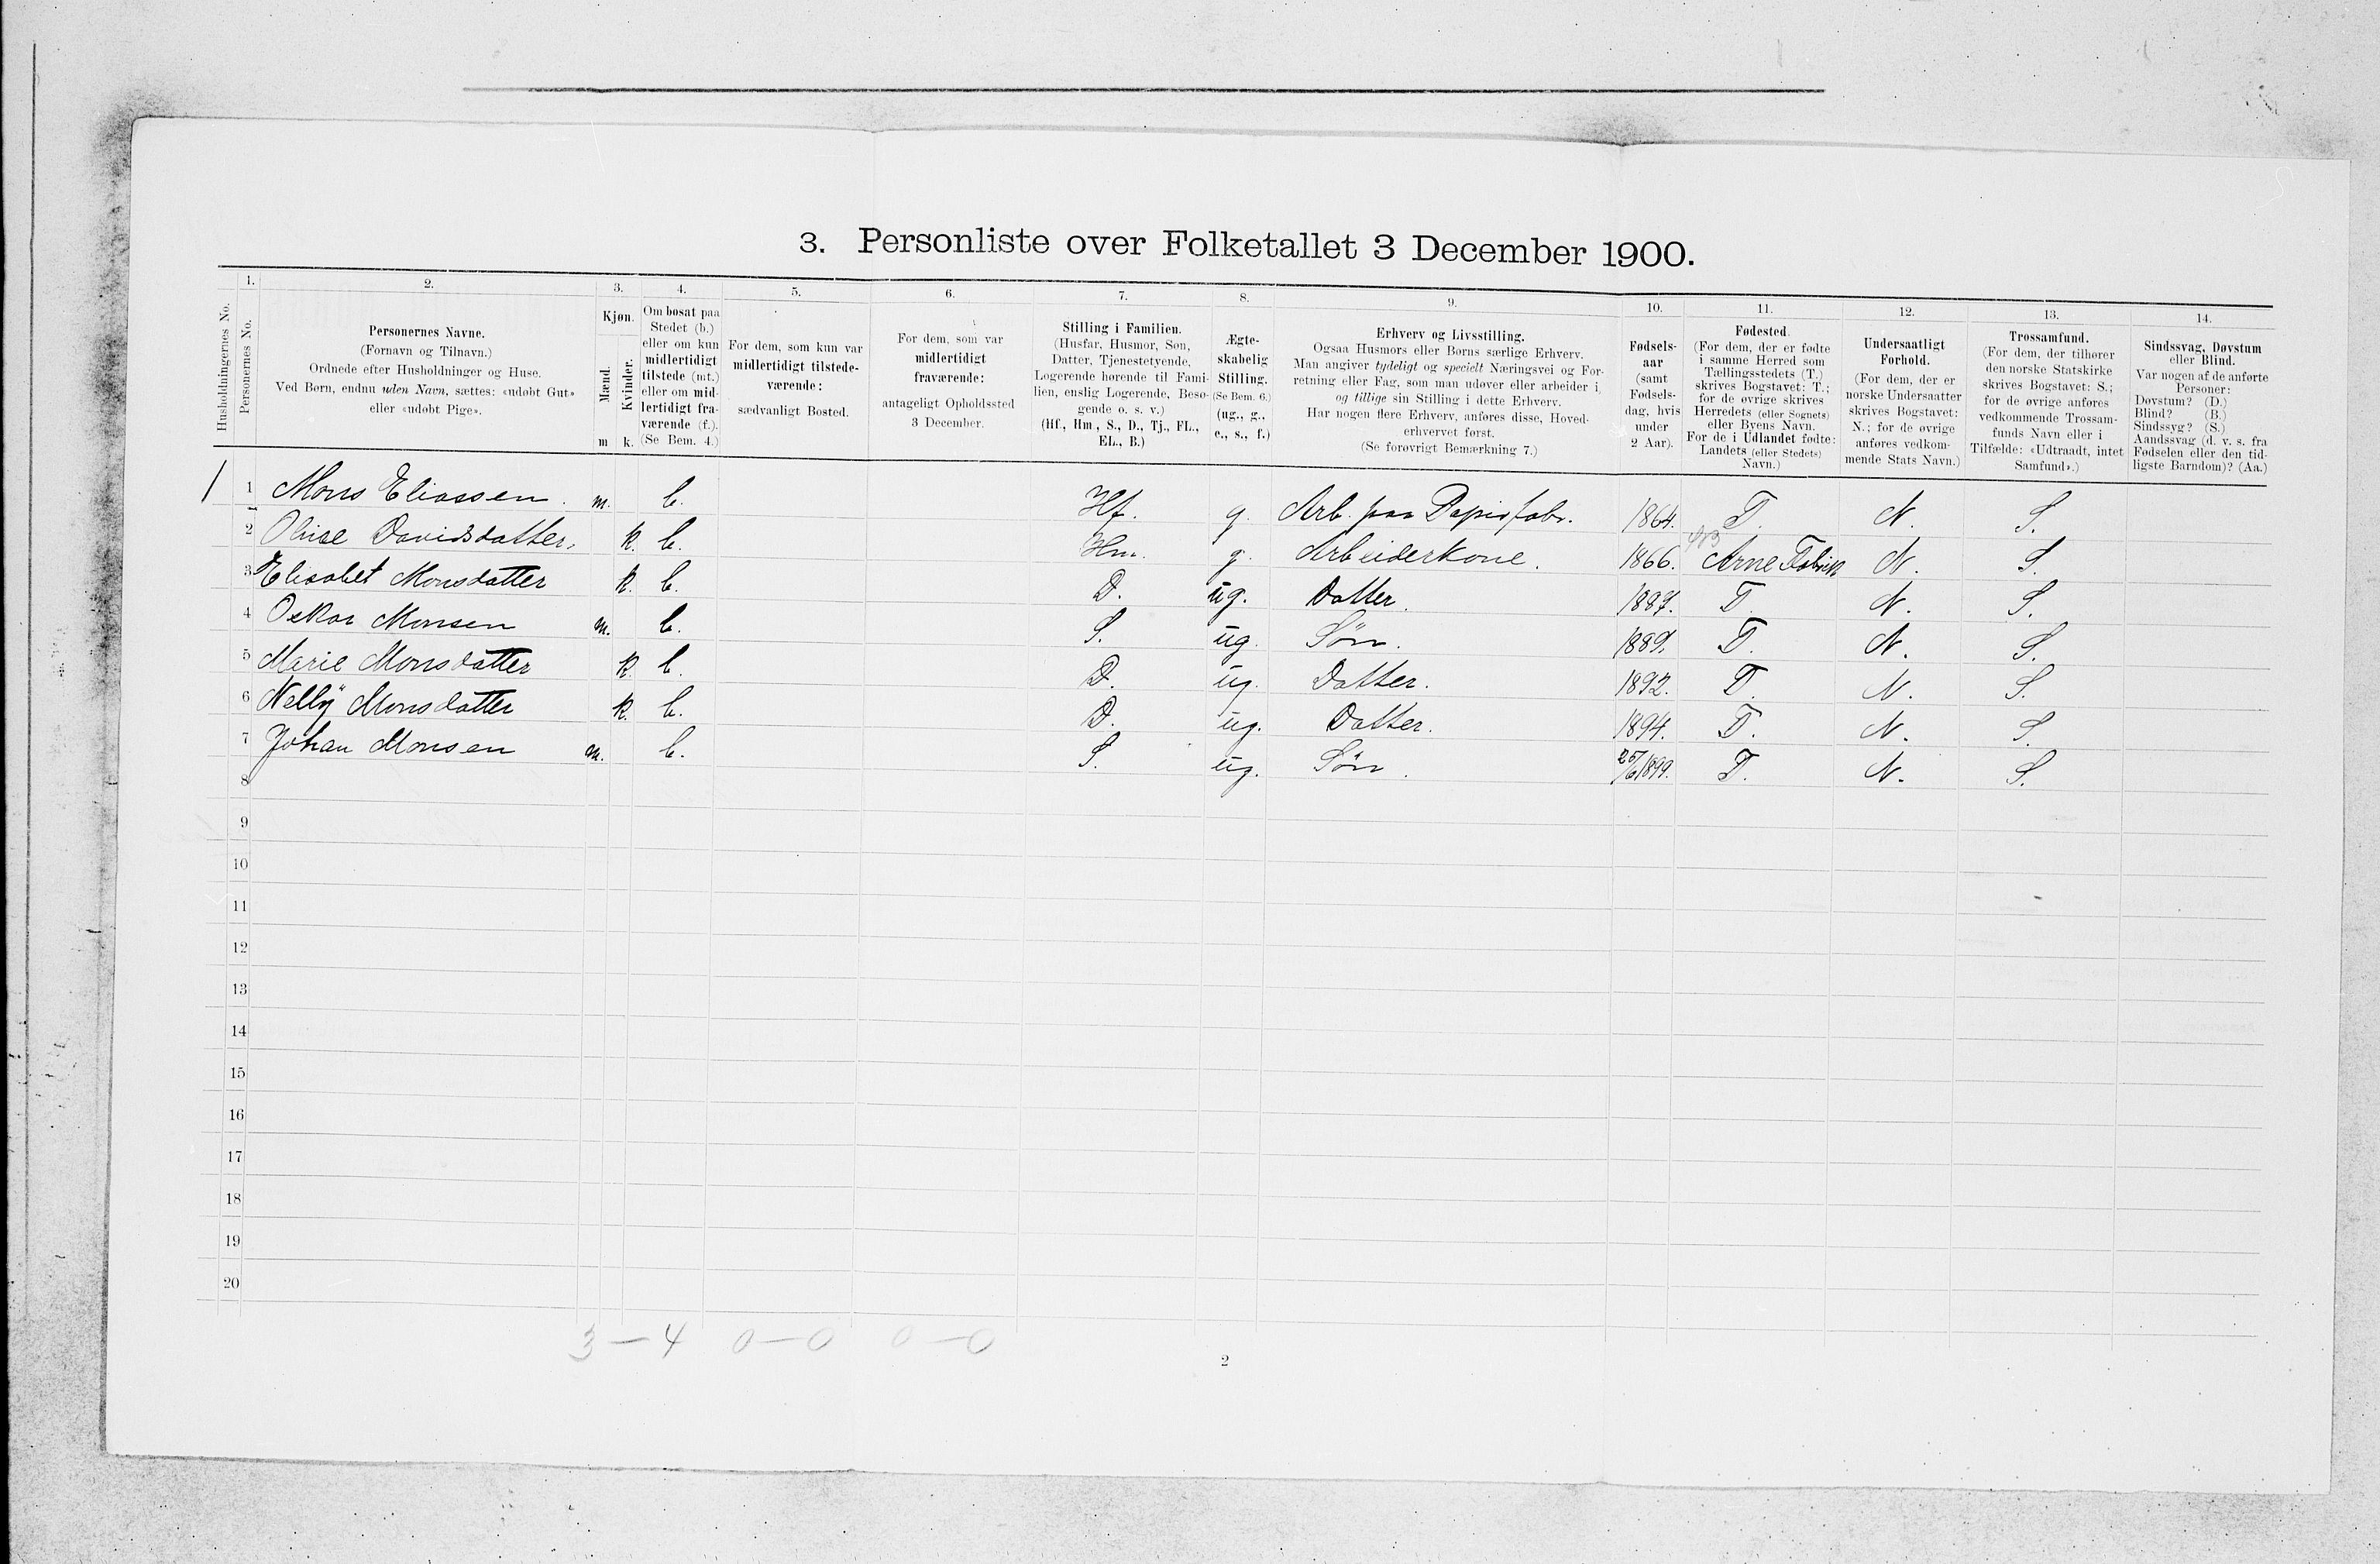 3. Personliste over Folketallet 3 December 1900.
1. 2. 3. 4. 5. 6. 7. 8. 9. 10. 11. 12. 13. 14.
Husholdningernes No.
Personernes No.
Personernes Navne.
(Fornavn og Tilnavn.)
Ordnede efter Husholdninger og Huse.
Ved Børn, endnu uden Navn, sættes: «udøbt Gut»
eller «udøbt Pige».
Kjøn.
Mænd.
Kvinder.
m k.
Om bosat paa
Stedet (b.)
eller om kun
midlertidigt
tilstede (mt.)
eller om mid-
lertidigt fra-
værende (f.).
(Se Bem. 4.)
For dem, som kun var
midlertidigt tilstede-
værende:
sædvanligt Bosted.
For dem, som var
midlertidigt
fraværende:
antageligt Opholdssted
3 December.
Stilling i Familien.
(Husfar, Husmor, Søn,
Datter, Tjenestetyende,
Logerende hørende til Fami-
lien, enslig Logerende, Besø-
gende o. s. v.)
(Hf., Hm., S., D., Tj., FL.,
EL., B.)
Ægte-
skabelig
Stilling.
(Se Bem. 6.)
(ug., g.,
e., s., f.)
Erhverv og Livsstilling.
Ogsaa Husmors eller Børns særlige Erhverv.
Man angiver tydeligt og specielt Næringsvei og For-
retning eller Fag, som man udøver eller arbeider i,
og tillige sin Stilling i dette Erhverv.
Har nogen flere Erhverv, anføres disse, Hoved-
erhvervet først.
(Se forøvrigt Bemærkning 7.)
Fødsels-
aar
(samt
Fødsels-
dag, hvis
under
2 Aar).
Fødested.
(For dem, der er fødte
i samme Herred som
Tællingsstedets (T.)
skrives Bogstavet: T.;
for de øvrige skrives
Herredets (eller Sognets)
eller Byens Navn.
For de i Udlandet fødte:
Landets (eller Stedets)
Navn.)
Undersaatligt
Forhold.
(For dem, der er
norske Undersaatter
skrives Bogstavet:
N.; for de øvrige
anføres vedkom-
mende Stats Navn.)
Trossamfund.
(For dem, der tilhører
den norske Statskirke
skrives Bogstavet: S.;
for de øvrige anføres
vedkommende Trossam-
funds Navn eller i
Tilfælde: «Udtraadt, intet
Samfund».)
Sindssvag, Døvstum
eller Blind.
Var nogen af de anførte
Personer:
Døvstum? (D.)
Blind? (B.)
Sindssyg? (S.)
Aandssvag (d. v. s. fra
Fødselen eller den tid-
ligste Barndom)? (Aa.)
1 1 Mons Eliassen. m. b. Hf. g. Arb. paa Papirfabr. 1864. T. N. S.
2 Olise Davidsdatter. k. b. Hm. g. Arbeiderkone. 1866. Arne Fabrik N. S.
3 Elisabet Monsdatter k. b. D. ug. Datter. 1887. T. N. S.
4 Oskar Monsen m. b. S. ug. Søn. 1889. T. N. S.
5 Marie Monsdatter k. b. D. ug. Datter. 1892. T. N. S.
6 Nelly Monsdatter k. b. D. ug. Datter. 1894. T. N. S.
7 Johan Monsen m. b. S. ug. Søn. 25/6 1899. T. N. S.
8
9
10
11
12
13
14
15
16
17
18
19
20
3 — 4 0 — 0 0 — 0
2